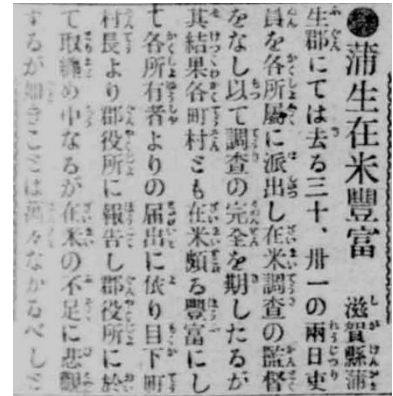 蒲生在米豐富　滋賀縣蒲
生郡にては去る三十、卅一の兩日吏
員を各所屬に派出し在米調査の監督
をなし以て調査の完全を期したるが
其結果各町村とも在米頗る豐富にし
て各所有者よりの届出に依り目下町
村長より郡役所に報告し郡役所に於
て取纏め中なるが在米の不足に悲觀
するが如きことは萬々なかるべしと